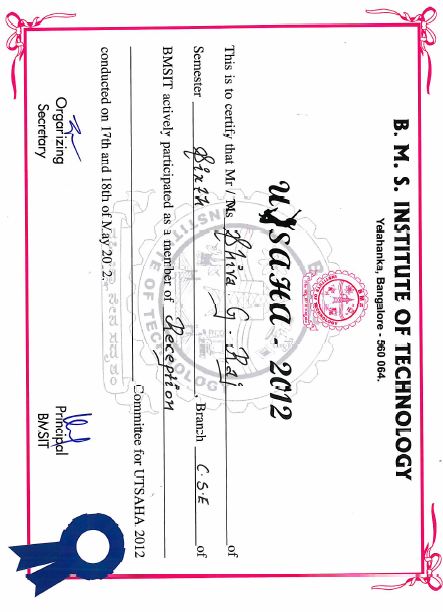 B. M. S. INSTITUTE OF TECHNOLOGY
Yelahanka, Bangalore - 560 064.
UTSAHA - 2012
This is to certify that Mr / Ms. Shiva . G . Raj of
Semester Sixth , Branch C.S.E of
BMSIT actively participated as a member of Reception
Committee for UTSAHA 2012
conducted on 17th and 18th of May 2012.
Organizing
Secretary
Principal
BMSIT